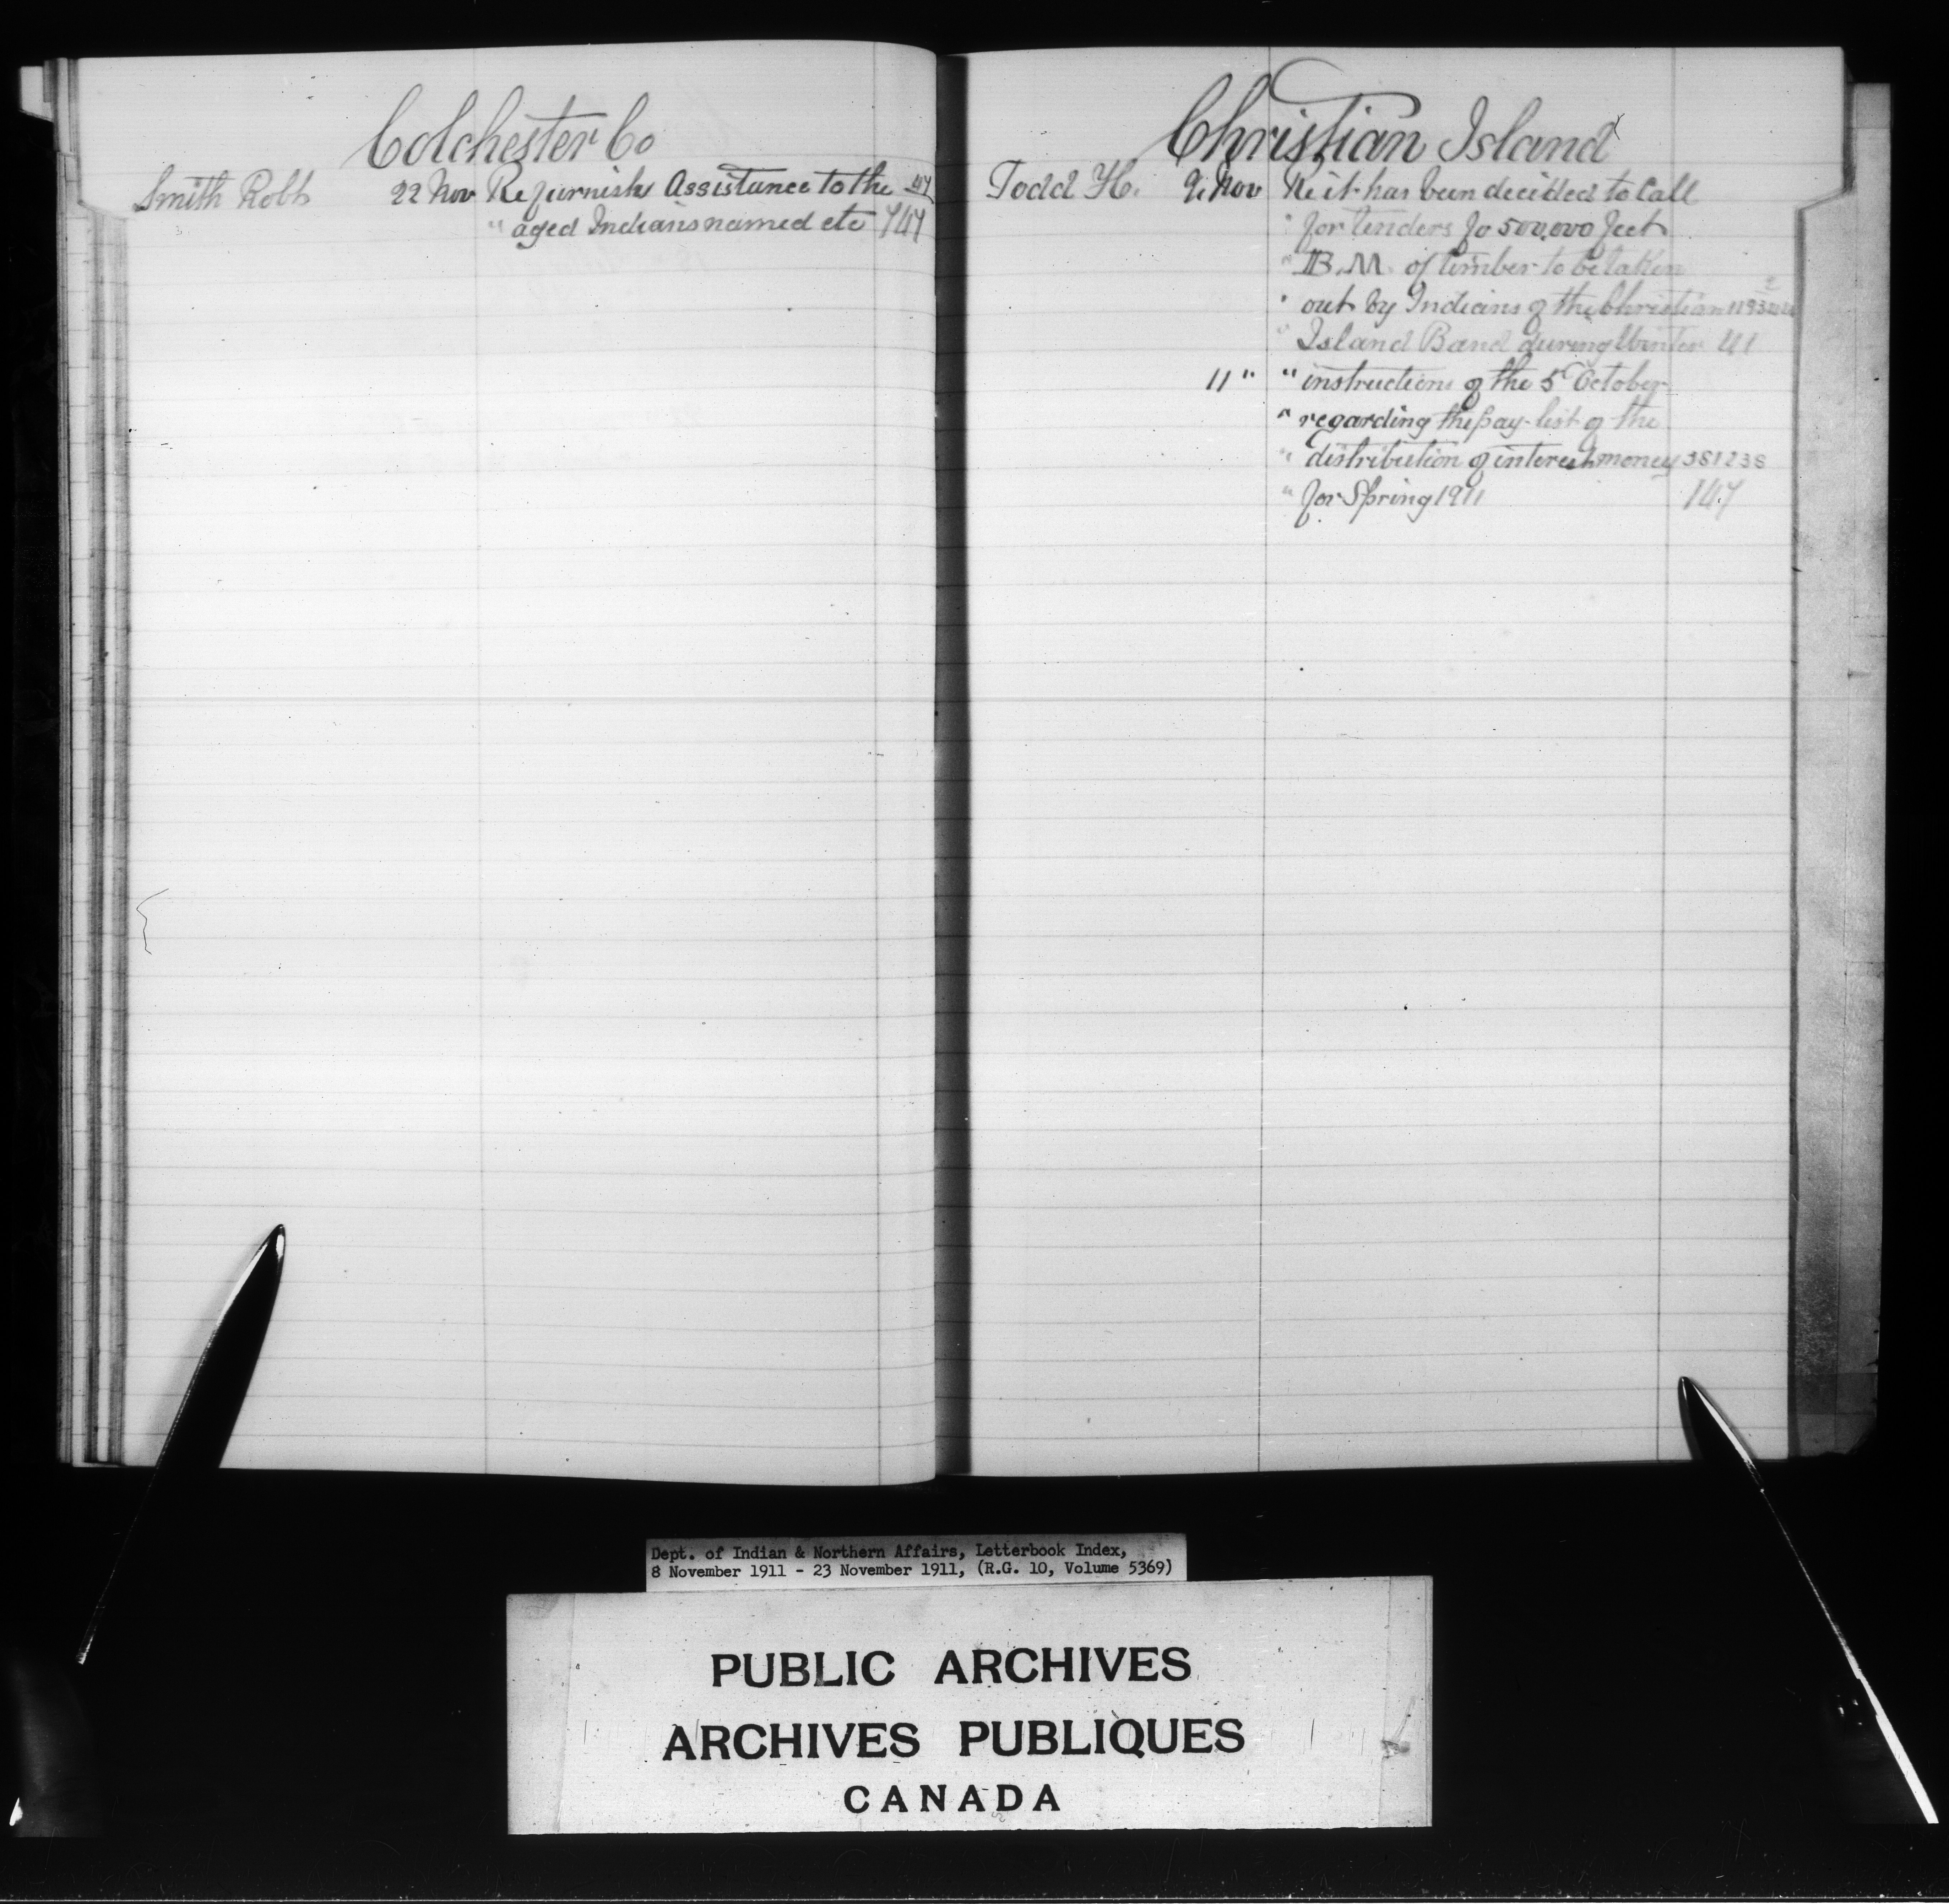 Colchester Co
Smith Robt 22 Nov Re furnish Assistance to the
" aged Indians named etc 747
Christian Island
Todd H. 9 Nov Re it has been decided to Call
" for tenders fo 500,000 feet
" B.M. of timber to be taken
" out by Indians of the Christian
" Island Band during Winter 41
11 " " instructions of the 5 October
" regarding the pay-list of the
" distribution of interest money 381238
" for Spring 1911 147
Dept. of Indian & Northern Affairs, Letterbook Index,
8 November 1911 - 23 November 1911, (R.G. 10, Volume 5369)
PUBLIC ARCHIVES
ARCHIVES PUBLIQUES
CANADA